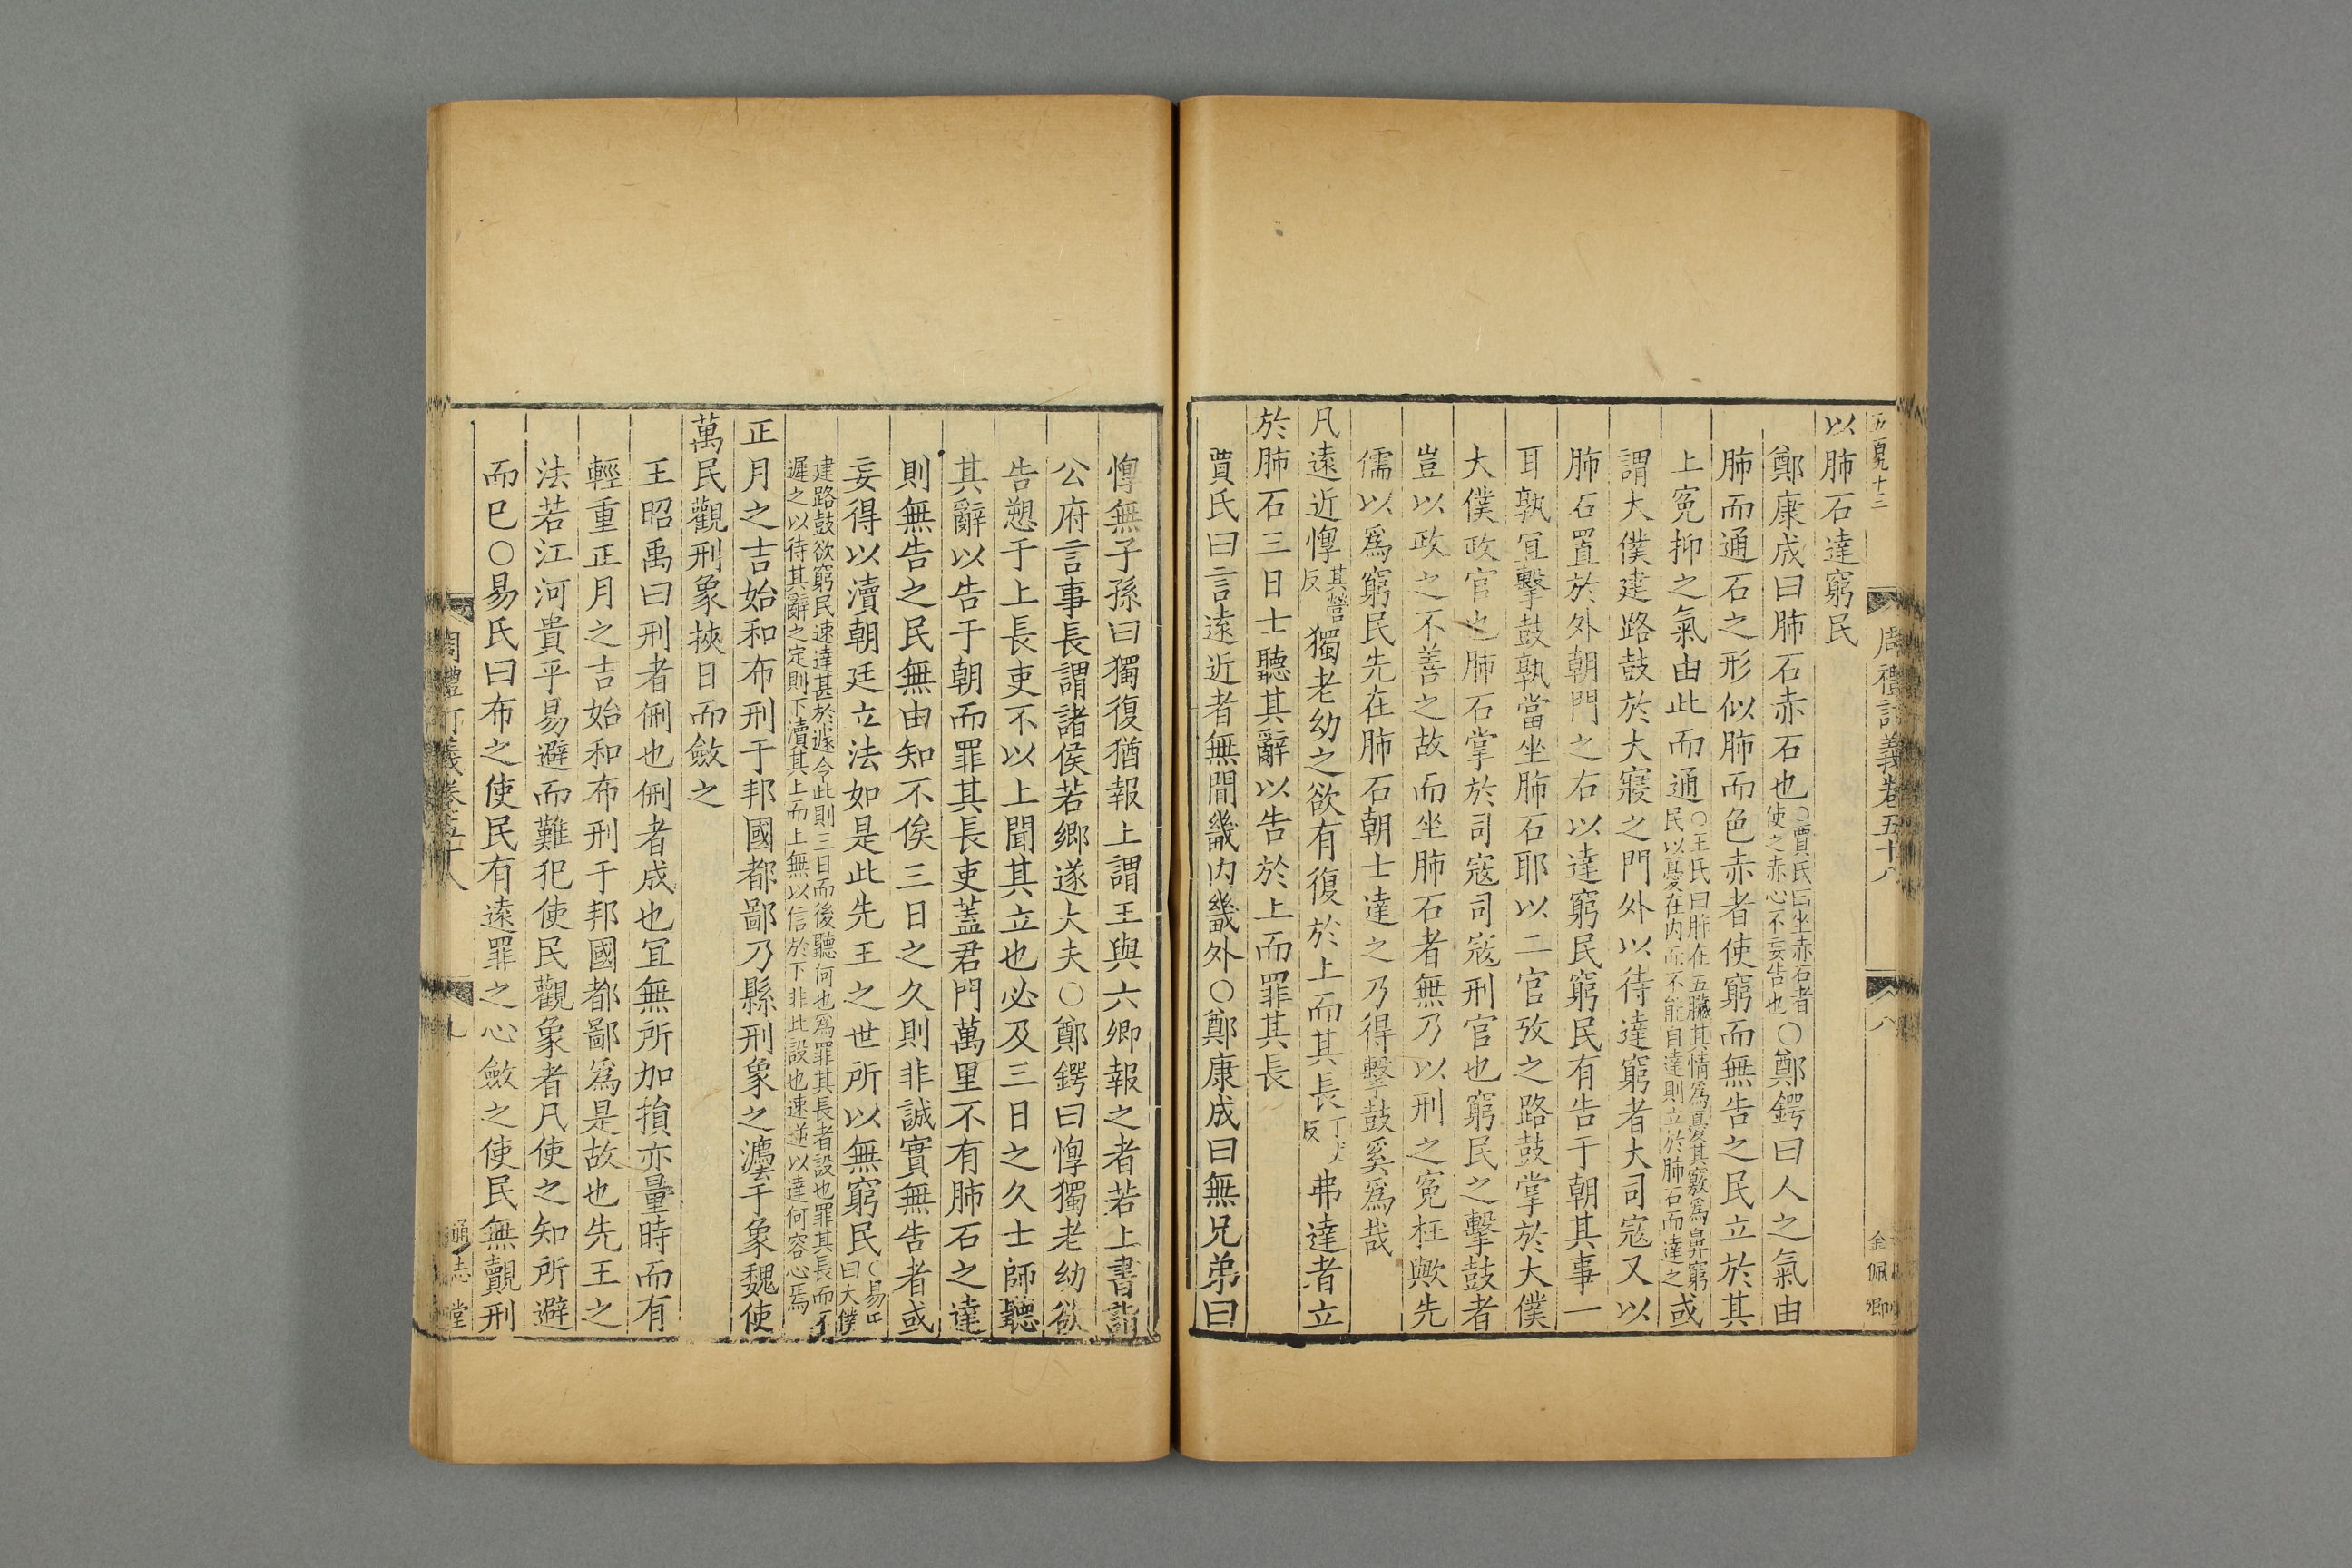 五百九十三
周禮訂義卷五十八
八
金佩卿
以肺石達窮民
鄭康成曰肺石赤石也○賈氏曰坐赤石者使之赤心不妄告也○鄭鍔曰人之氣由
肺而通石之形似肺而色赤者使窮而無告之民立於其
上寃抑之氣由此而通○王氏曰肺在五臟其情爲憂其竅爲鼻窮民以憂在内而不能自達則立於肺石而達之或
謂大僕建路鼓於大寢之門外以待達窮者大司寇又以
肺石置於外朝門之右以達窮民窮民有告于朝其事一
耳孰冝擊鼓孰當坐肺石耶以二官攷之路鼓掌於大僕
大僕政官也肺石掌於司寇司寇刑官也窮民之擊鼓者
豈以政之不善之故而坐肺石者無乃以刑之寃枉歟先
儒以爲窮民先在肺石朝士達之乃得擊鼓奚爲哉
凡遠近惸其營反獨老幼之欲有復於上而其長丁丈反弗達者立
於肺石三日士聽其辭以告於上而罪其長
賈氏曰言遠近者無間畿内畿外○鄭康成曰無兄弟曰
惸無子孫曰獨復猶報上謂王與六卿報之者若上書詣
公府言事長謂諸侯若鄉遂大夫○鄭鍔曰惸獨老幼欲
告愬于上長吏不以上聞其立也必及三日之久士師聽
其辭以告于朝而罪其長吏蓋君門萬里不有肺石之達
則無告之民無由知不俟三日之久則非誠實無告者或
妄得以瀆朝廷立法如是此先王之世所以無窮民○易氏曰大僕
建路鼓欲窮民速達甚於遽令此則三日而後聽何也爲罪其長者設也罪其長而不遲之以待其辭之定則下瀆其上而上無以信於下非此設也速逆以達何容心焉
正月之吉始和布刑于邦國都鄙乃縣刑象之灋于象魏使
萬民觀刑象挾日而斂之
王昭禹曰刑者侀也侀者成也冝無所加損亦量時而有
輕重正月之吉始和布刑于邦國都鄙爲是故也先王之
法若江河貴乎易避而難犯使民觀象者凡使之知所避
而巳○易氏曰布之使民有遠罪之心斂之使民無覿刑
周禮訂義卷五十八
九
通志堂